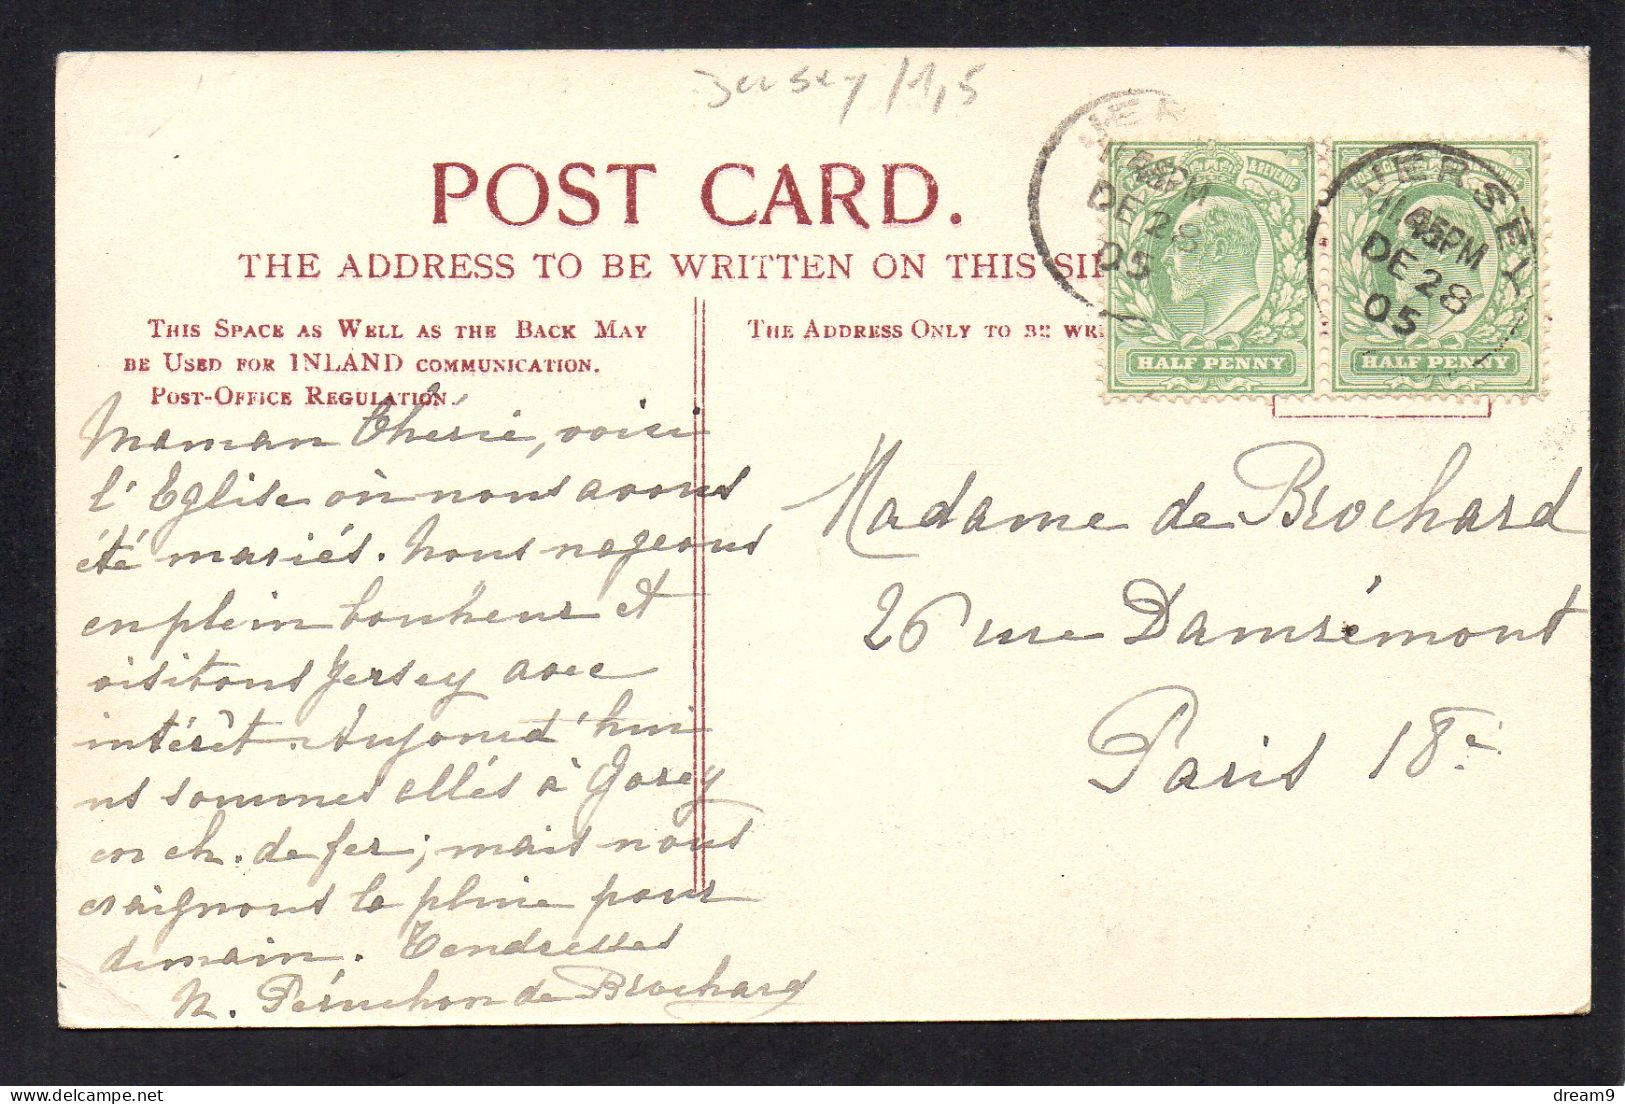 Jersey /1,5
POST CARD.
THE ADDRESS TO BE WRITTEN ON THIS SI
THIS SPACE AS WELL AS THE BACK MAY
BE USED FOR INLAND COMMUNICATION.
POST-OFFICE REGULATION.
THE ADDRESS ONLY TO BE WRI
JER
11.45PM
DE 28
05
& REVENUE
HALF PENNY
JERSEY
11.45PM
DE 28
05
HALF PENNY
Maman Chérie, voici
l'Eglise où nous avons
été mariés. Nous nageons
en plein bonheur et
visitons Jersey avec
intérêt. Aujourd'hui
ns sommes allés à Gorey
en ch. de fer; mais nous
craignons la pluie pour
demain. Tendresses
N. Péruchon de Brochard
Madame de Brochard
26 rue Damrémont
Paris 18e
delcampe.net
dream9